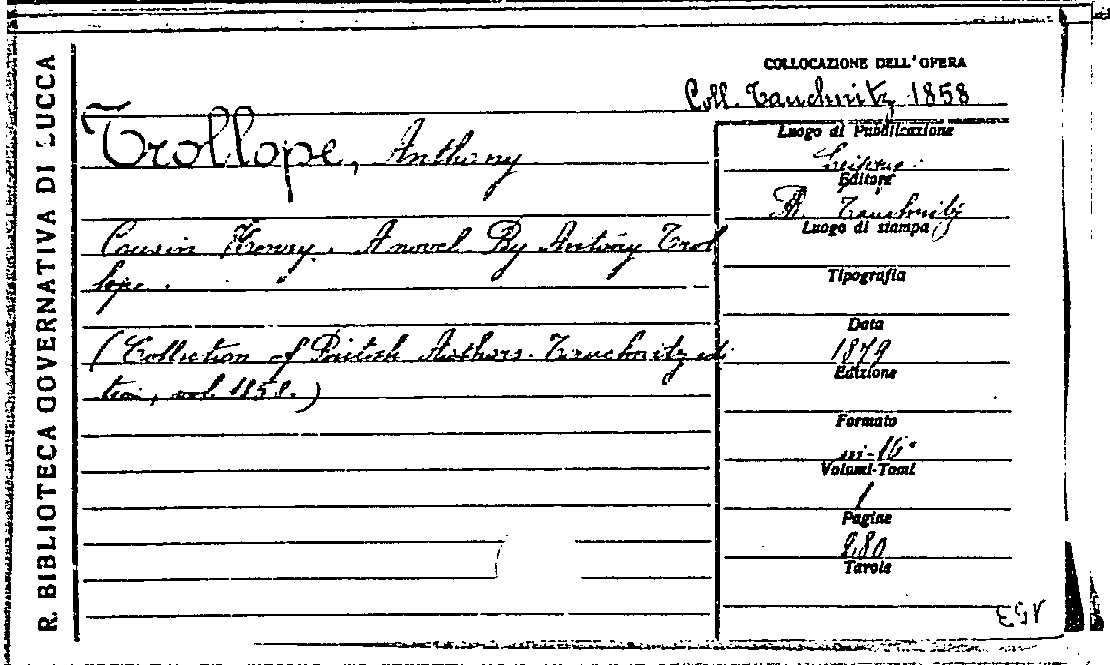 R. BIBLIOTECA GOVERNATIVA DI LUCCA
COLLOCAZIONE DELL'OPERA
Coll. Tauchnitz 1858
Trollope, Anthony
Cousin Henry. A novel By Antony Trol
lope.
(Collection of British Authors. Tauchnitz edi
tion, vol. 1858.)
Luogo di Pubblicazione
Editore
B. Tauchnitz
Luogo di stampa
Tipografia
Data
1879
Edizione
Formato
in-16°
Volumi-Tomi
1
Pagine
280
Tavole